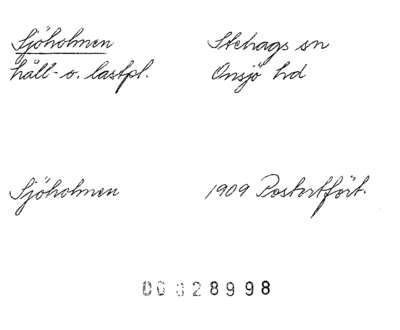 Sjöholmen Stehags sn
håll- o. lastpl. Onsjö hd
Sjöholmen 1909 Postortfört.
00028998